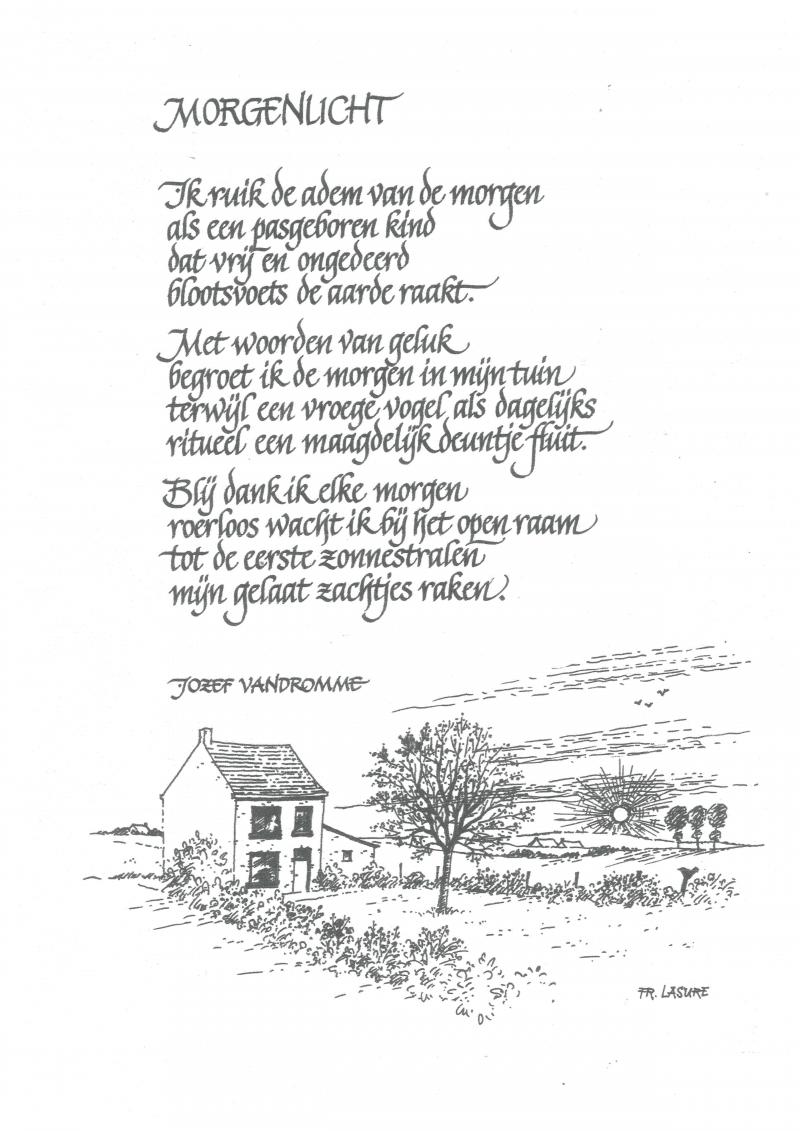 MORGENLICHT
Ik ruik de adem van de morgen
als een pasgeboren kind
dat vrij en ongedeerd
blootsvoets de aarde raakt.
Met woorden van geluk
begroet ik de morgen in mijn tuin
terwijl een vroege vogel als dagelijks
ritueel een maagdelijk deuntje fluit.
Blij dank ik elke morgen
roerloos wacht ik bij het open raam
tot de eerste zonnestralen
mijn gelaat zachtjes raken.
JOZEF VANDROMME
FR. LASURE